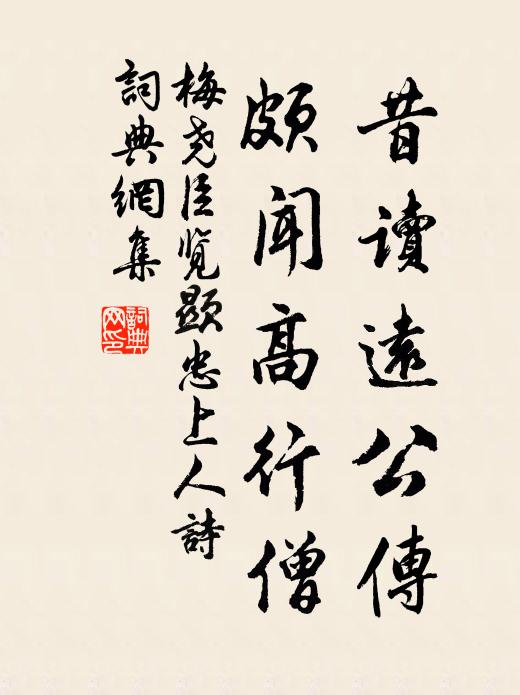 昔讀遠公傳
頗聞高行僧
梅尭臣覽顯忠上人詩
詞典網集
詞典网印